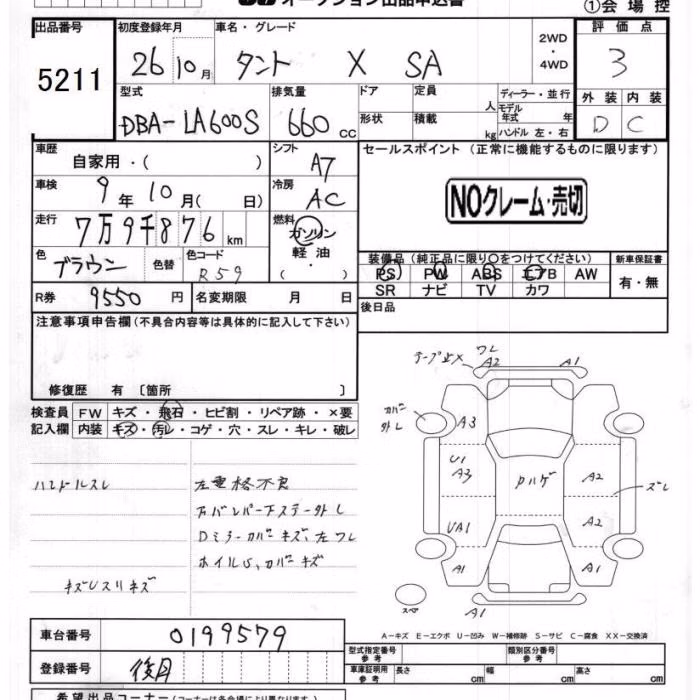 オークション出品申込書
①会場控
出品番号 初度登録年月 車名・グレード 2WD・4WD 評価点
5211 26年10月 タント X SA 3
型式 排気量 ドア 定員 人 ディーラー・並行 外装 内装
DBA-LA600S 660cc 形状 積載 kg モデル年式 年 ハンドル 左・右 D C
車歴 自家用・( ) シフト A7 セールスポイント (正常に機能するものに限ります)
車検 9年10月( 日) 冷房 AC NOクレーム・売切
走行 7万9千876km 燃料 ガソリン・軽油・( )
色 ブラウン 色替 色コード R59
装備品 (純正品に限り○をつけてください) 新車保証書
PS PW ABS エアB AW 有・無
SR ナビ TV カワ
R券 9550円 名変期限 月 日 後日品
注意事項申告欄 (不具合内容等は具体的に記入して下さい)
修復歴 有 〔箇所 〕
検査員記入欄 FW キズ・飛石・ヒビ割・リペア跡・×要
内装 キズ・汚れ・コゲ・穴・スレ・キレ・破レ
ハンドルスレ 左電格不良
Fバンパー下ステー外レ
Dミラーカバーキズ、左ワレ
ホイルS、カバーキズ
キズUスリキズ
テープ止× ワレ
A2 A1
カバー外レ
A3
U1
A3 Pハゲ A2
ズレ
UA1 A2
A1 A1
スペ A1
A-キズ E-エクボ U-凹み W-補修跡 S-サビ C-腐食 XX-交換済
車台番号 0199579 型式指定番号 参考 類別区分番号 参考
登録番号 後月 車庫証明用 参考 長さ cm 幅 cm 高さ cm
希望出品コーナー (コーナーは各会場により異なります)